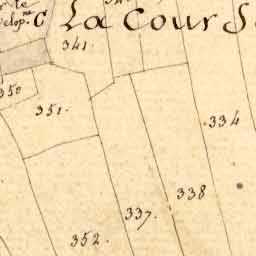 elop.nt C
La Cour S
341.
350
351.
334
338
337.
352.